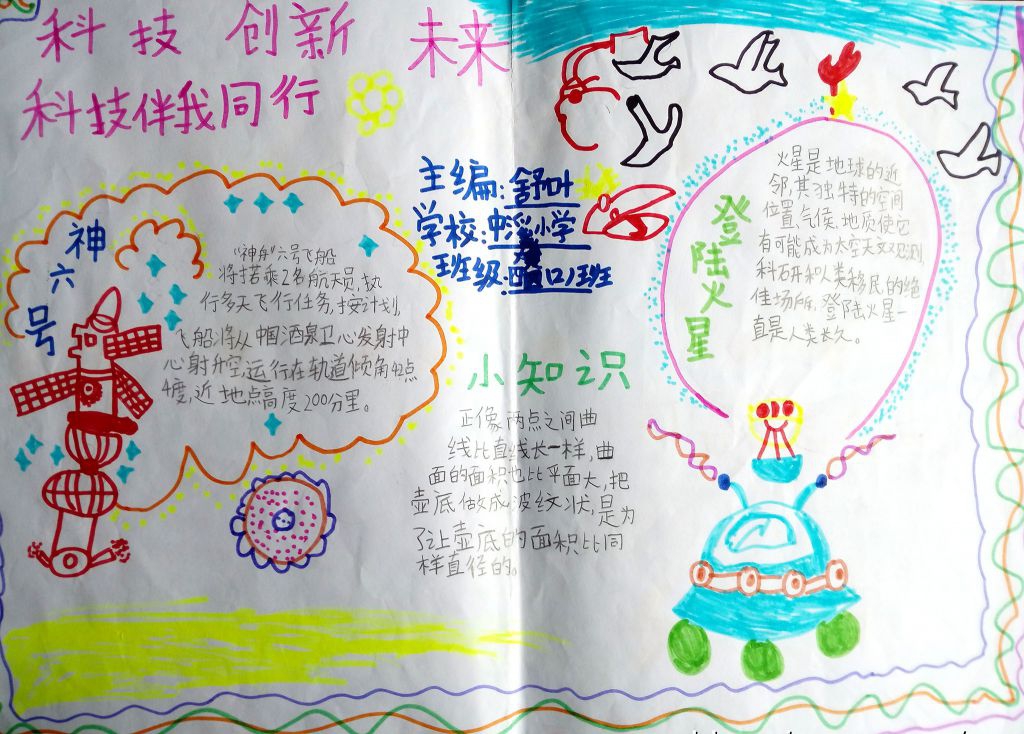 科技 创新 未来
科技伴我同行
神六号
"神舟"六号飞船
将搭乘2名航天员,执
行多天飞行任务,按计划,
飞船将从中国酒泉卫心发射中
心射升空,运行在轨道倾角42点
4度,近地点高度200分里。
主编:舒叶
学校:中溪小学
班级:四(1)班
小知识
正像两点之间曲
线比直线长一样,曲
面的面积也比平面大,把
壶底做成波纹状,是为
了让壶底的面积比同
样直径的。
登陆火星
火星是地球的近
邻,其独特的空间
位置,气候,地质使它
有可能成为太空天文观测,
科研和人类移民的绝
佳场所,登陆火星一
直是人类长久。